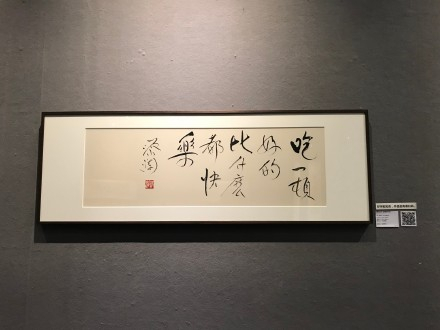 吃一頓
好的
比什麼
都快
樂
蔡瀾